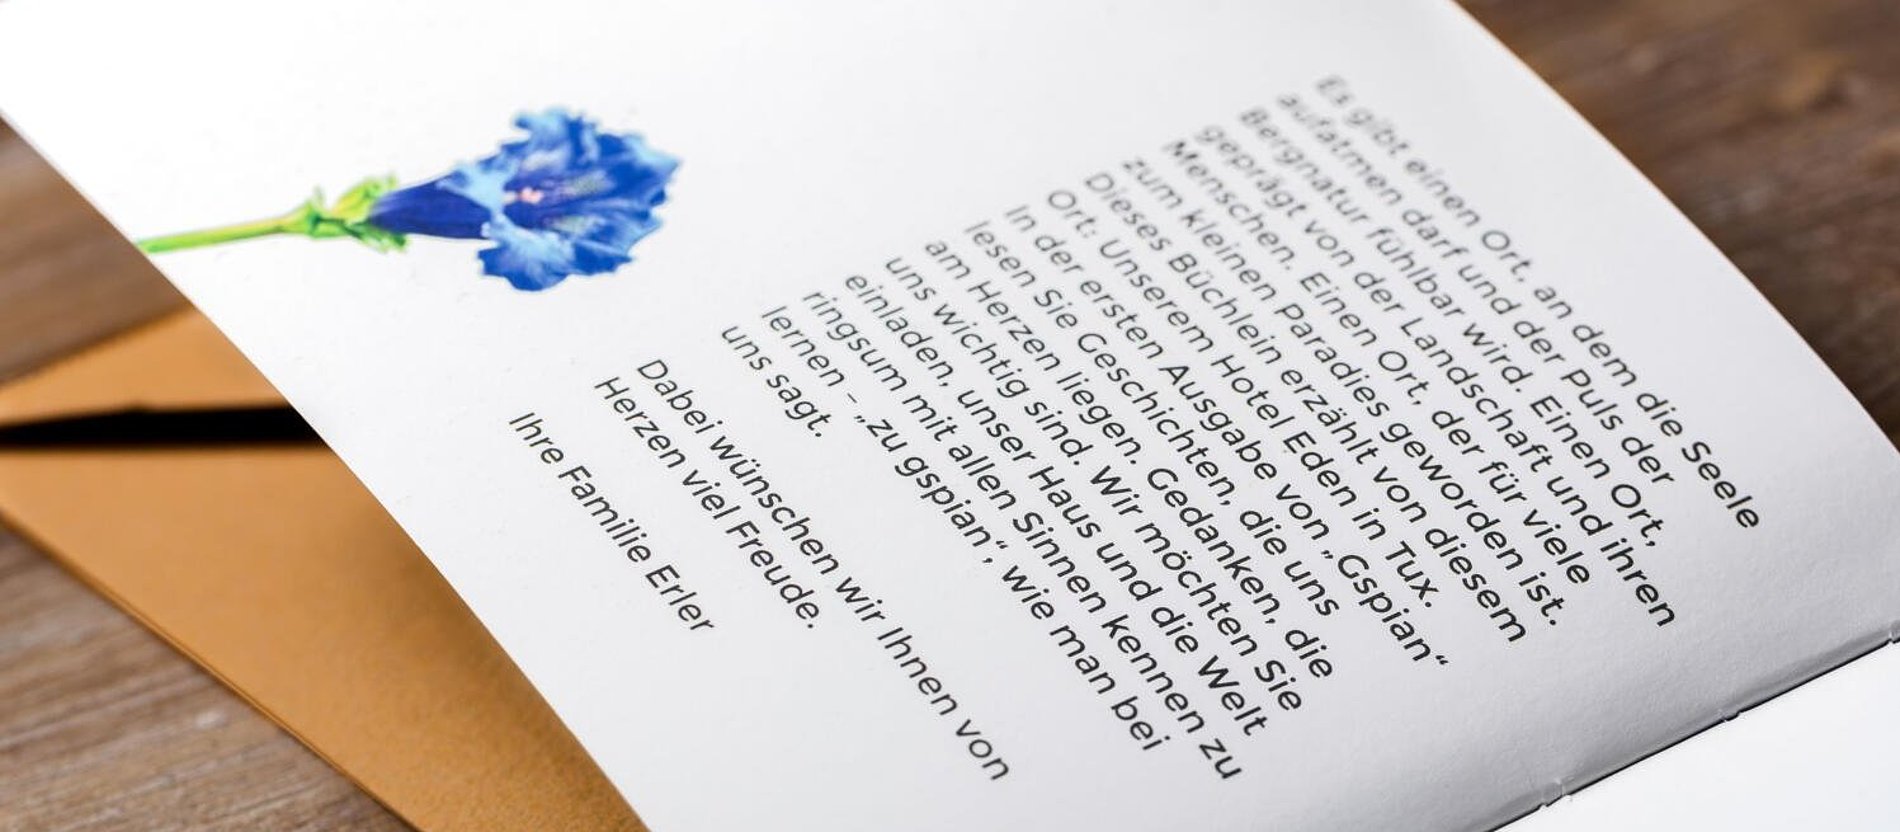 Es gibt einen Ort, an dem die Seele
aufatmen darf und der Puls der
Bergnatur fühlbar wird. Einen Ort,
geprägt von der Landschaft und ihren
Menschen. Einen Ort, der für viele
zum kleinen Paradies geworden ist.
Dieses Büchlein erzählt von diesem
Ort: Unserem Hotel Eden in Tux.
In der ersten Ausgabe von „Gspian“
lesen Sie Geschichten, die uns
am Herzen liegen. Gedanken, die
uns wichtig sind. Wir möchten Sie
einladen, unser Haus und die Welt
ringsum mit allen Sinnen kennen zu
lernen – „zu gspian“, wie man bei
uns sagt.
Dabei wünschen wir Ihnen von
Herzen viel Freude.
Ihre Familie Erler